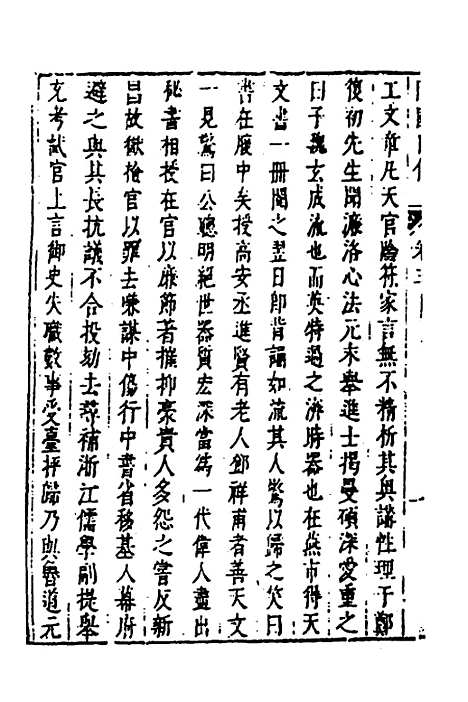 工文章凡天官陰符家言無不精析其奥講性理于鄭
復初先生聞濂洛心法元末舉進士揭曼碩深愛重之
曰子魏玄成流也而英特過之濟時器也在燕市得天
文書一冊閱之翌日卽背誦如流其人驚以歸之笑曰
書在腹中矣授高安丞進賢有老人鄧祥甫者善天文
一見驚曰公聰明絕世器質宏深當爲一代偉人盡出
秘書相授在官以廉節著摧抑豪貴人多怨之嘗反新
昌故獄檢官以罪去嗛謀中傷行中書省移基入幕府
避之與其長抗議不合投劾去尋補浙江儒學副提舉
充考試官上言御史失職數事受臺抨歸乃與魯道元